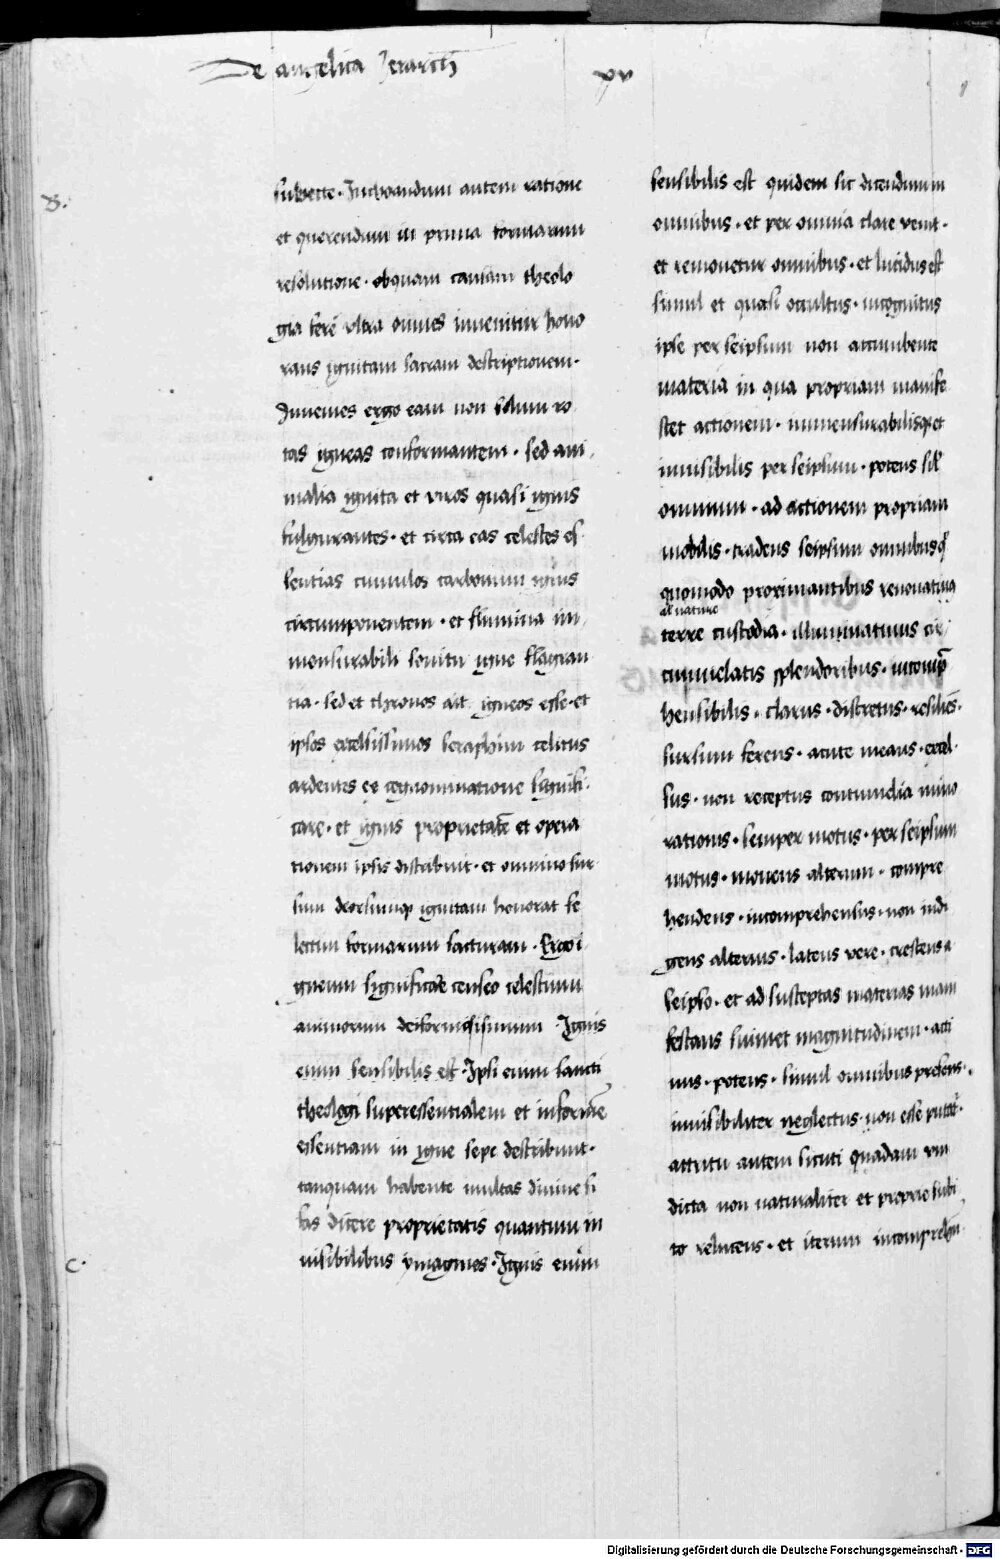 De angelica Jerarch
xv
B.
subiecte · Inchoandum autem ratione
et querendum in prima formarum
resolutione · ob quam causam theolo
gia fere ultra omnes invenitur hono
rans ignitam sacram descriptionem ·
Invenies ergo eam non solum ro
tas igneas conformantem · sed ani
malia ignita et viros quasi ignis
fulgurantes · et circa eas celestes es
sentias cumulos carbonum ignis
circumponentem · et flumina im
mensurabili sonitu igne flagran
tia · sed et thronos ait igneos esse · et
ipsos excelsissimos seraphim celitus
ardentes ex cognominatione signifi
care · et ignis proprietatē et opera
tionem ipsis distribuit · et omnino sur
sum deorsumq ignitam honorat se
lectim formarum facturam · Ergo i
gneum significare censeo celestium
animorum deiformissimum · Ignis
enim sensibilis est · Ipsi enim sancti
theologi superessentialem et informē
essentiam in igne sepe describunt ·
tanquam habente multas divine si
fas dicere proprietatis quantum in
visibilibus ymagines · Ignis enim
C ·
sensibilis est quidem sic dicendum in
omnibus · et per omnia clare venit ·
et removetur omnibus · et lucidus est
simul et quasi occultus · incognitus
ipse per seipsum non accumbente
materia in qua propriam manife
stet actionem · immensurabilisq et
invisibilis per seipsum · potens sil
omnium · ad actionem propriam
mobilis · tradens seipsum omnibusq
quomodo proximantibus renovativus
al nature
terre custodia · illuminativus cir
cumvelatis splendoribus · incomp
hensibilis · clarus · discretus · resiliēs ·
sursum ferens · acute means · excel
sus · non receptus contumelia mino
rationis · semper motus · per seipsum
motus · movens alterum · compre
hendens · incomprehensus · non indi
gens alterius · latens vere · crescens a
seipso · et ad susceptas materias mani
festans suimet magnitudinem · acti
vus · potens · simul omnibus presens ·
invisibiliter neglectus · non esse putat ·
attritu autem sicuti quadam vin
dicta non naturaliter et proprie subi
to relucens · et iterum incomprehen